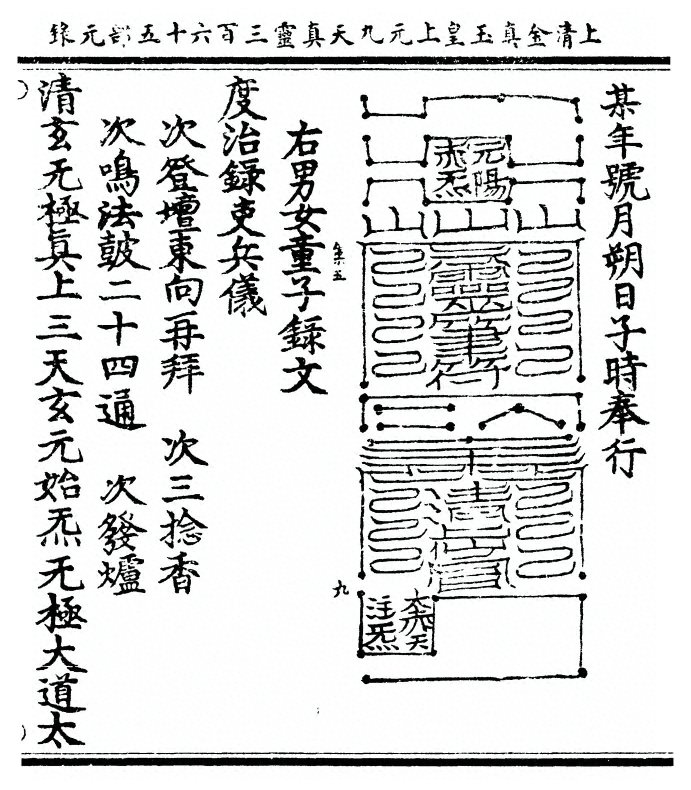 上清金真玉皇上元九天真靈三百六十五部元錄
某年號月朔日子時奉行
元陽
赤炁
注炁
集五
九
右男女童子錄文
度治錄吏兵儀
次登壇東向再拜　次三捻香
次鳴法皷二十四通　次發爐
清玄无極眞上三天玄元始炁无極大道太